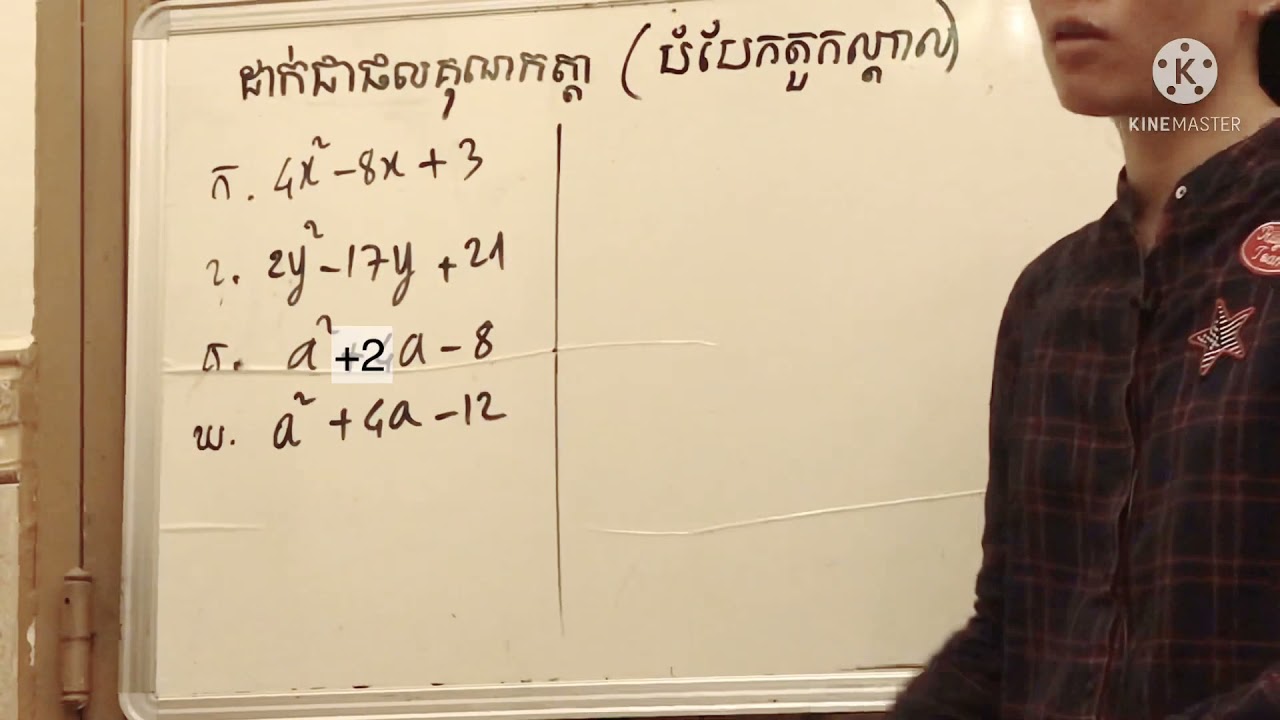 ដាក់ជាផលគុណកត្តា (បំបែកតួកណ្តាល)
ក. 4x² -8x + 3
ខ. 2y² -17y + 21
គ. a² +2a - 8
ឃ. a² + 4a - 12
KINEMASTER